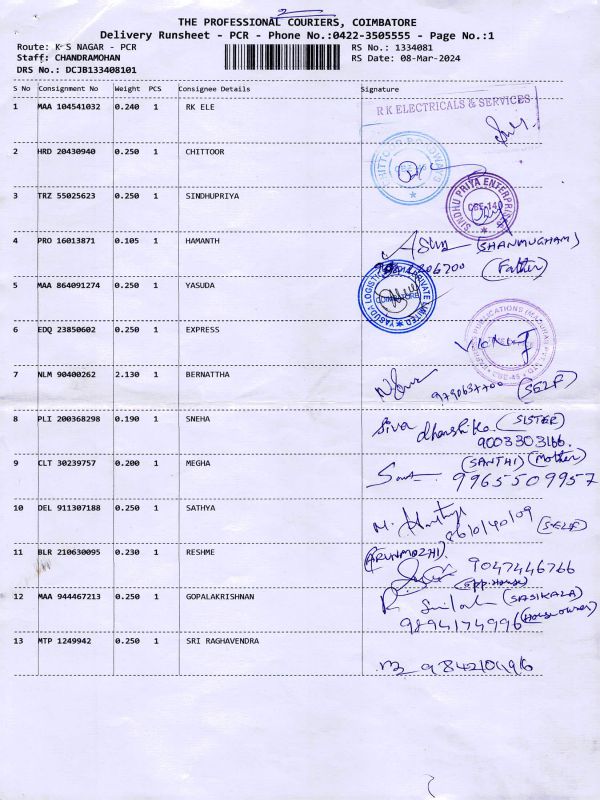 THE PROFESSIONAL COURIERS, COIMBATORE
Delivery Runsheet - PCR - Phone No.:0422-3505555 - Page No.:1
Route: K S NAGAR - PCR
RS No.: 1334081
Staff: CHANDRAMOHAN
RS Date: 08-Mar-2024
DRS No.: DCJB133408101
S No Consignment No Weight PCS Consignee Details Signature
1 MAA 104541032 0.240 1 RK ELE
R K ELECTRICALS & SERVICES
2 HRD 20430940 0.250 1 CHITTOOR
3 TRZ 55025623 0.250 1 SINDHUPRIYA
SINDHU PRIYA ENTERPRISES
4 PRO 16013871 0.105 1 HAMANTH
(SHANMUGHAM)
(Father)
5 MAA 864091274 0.250 1 YASUDA
YASUDA LOGISTICS PRIVATE LIMITED
COIMBATORE
6 EDQ 23850602 0.250 1 EXPRESS
7 NLM 90400262 2.130 1 BERNATTHA
(SELF)
8 PLI 200368298 0.190 1 SNEHA
Siva dharshika (SISTER)
9003303166.
9 CLT 30239757 0.200 1 MEGHA
(SANTHI) (Mother)
9965509957
10 DEL 911307188 0.250 1 SATHYA
8610140109
(SELF)
11 BLR 210630095 0.230 1 RESHME
(ARUNMOZHI).
9047446766
(opp.House)
12 MAA 944467213 0.250 1 GOPALAKRISHNAN
(SASIKALA)
9894174996 (House owner)
13 MTP 1249942 0.250 1 SRI RAGHAVENDRA